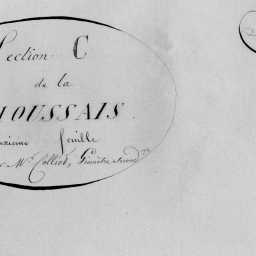 Section C
de la
OUSSAIS.
uxième feuille
Mr. Colliod, Géomètre second